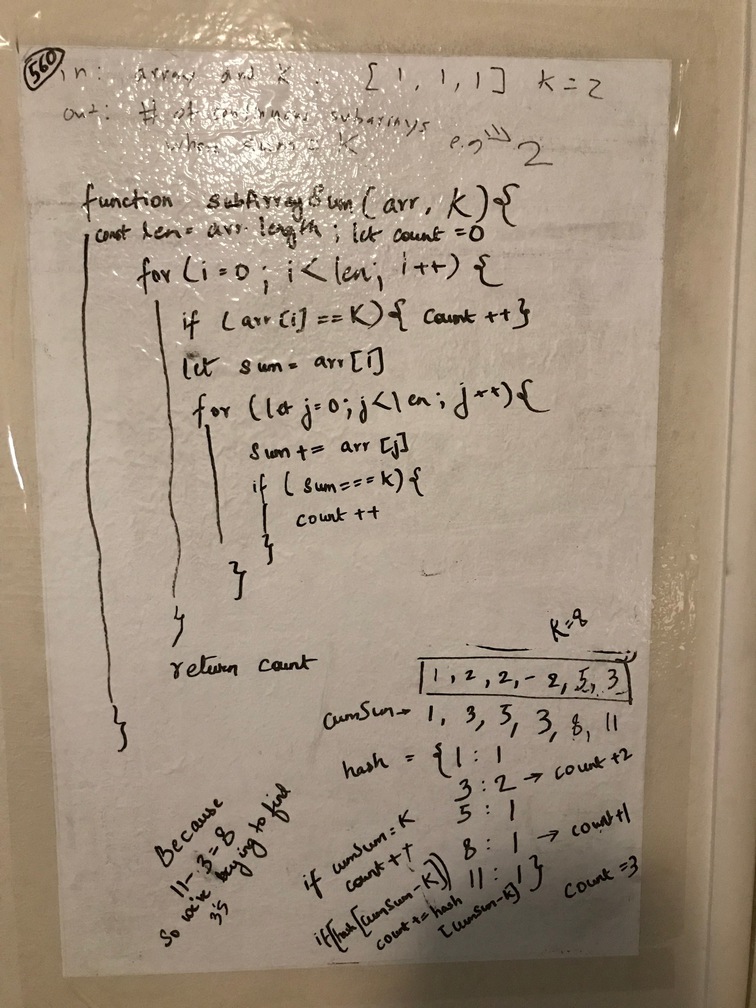 560
in: array and k. [1, 1, 1] k=2
out: # of continuous subarrays
where sum = K e.g 2
function subArraySum(arr, K){
const len = arr.length; let count = 0
for (i=0; i<len; i++) {
if (arr[i] == K){ count ++}
let sum = arr[i]
for (let j=0; j<len; j++){
sum += arr[j]
if (sum===K){
count ++
}
}
}
return count
}
K=8
1, 2, 2, -2, 5, 3
cumSum→ 1, 3, 5, 3, 8, 11
hash = {1 : 1
3 : 2 → count+2
5 : 1
8 : 1 → count+1
11 : 1}
count = 3
if cumSum=K
count++
if(hash[cumSum-K])
count += hash
[cumSum-K]
Because
11-3=8
So we're trying to find
3's